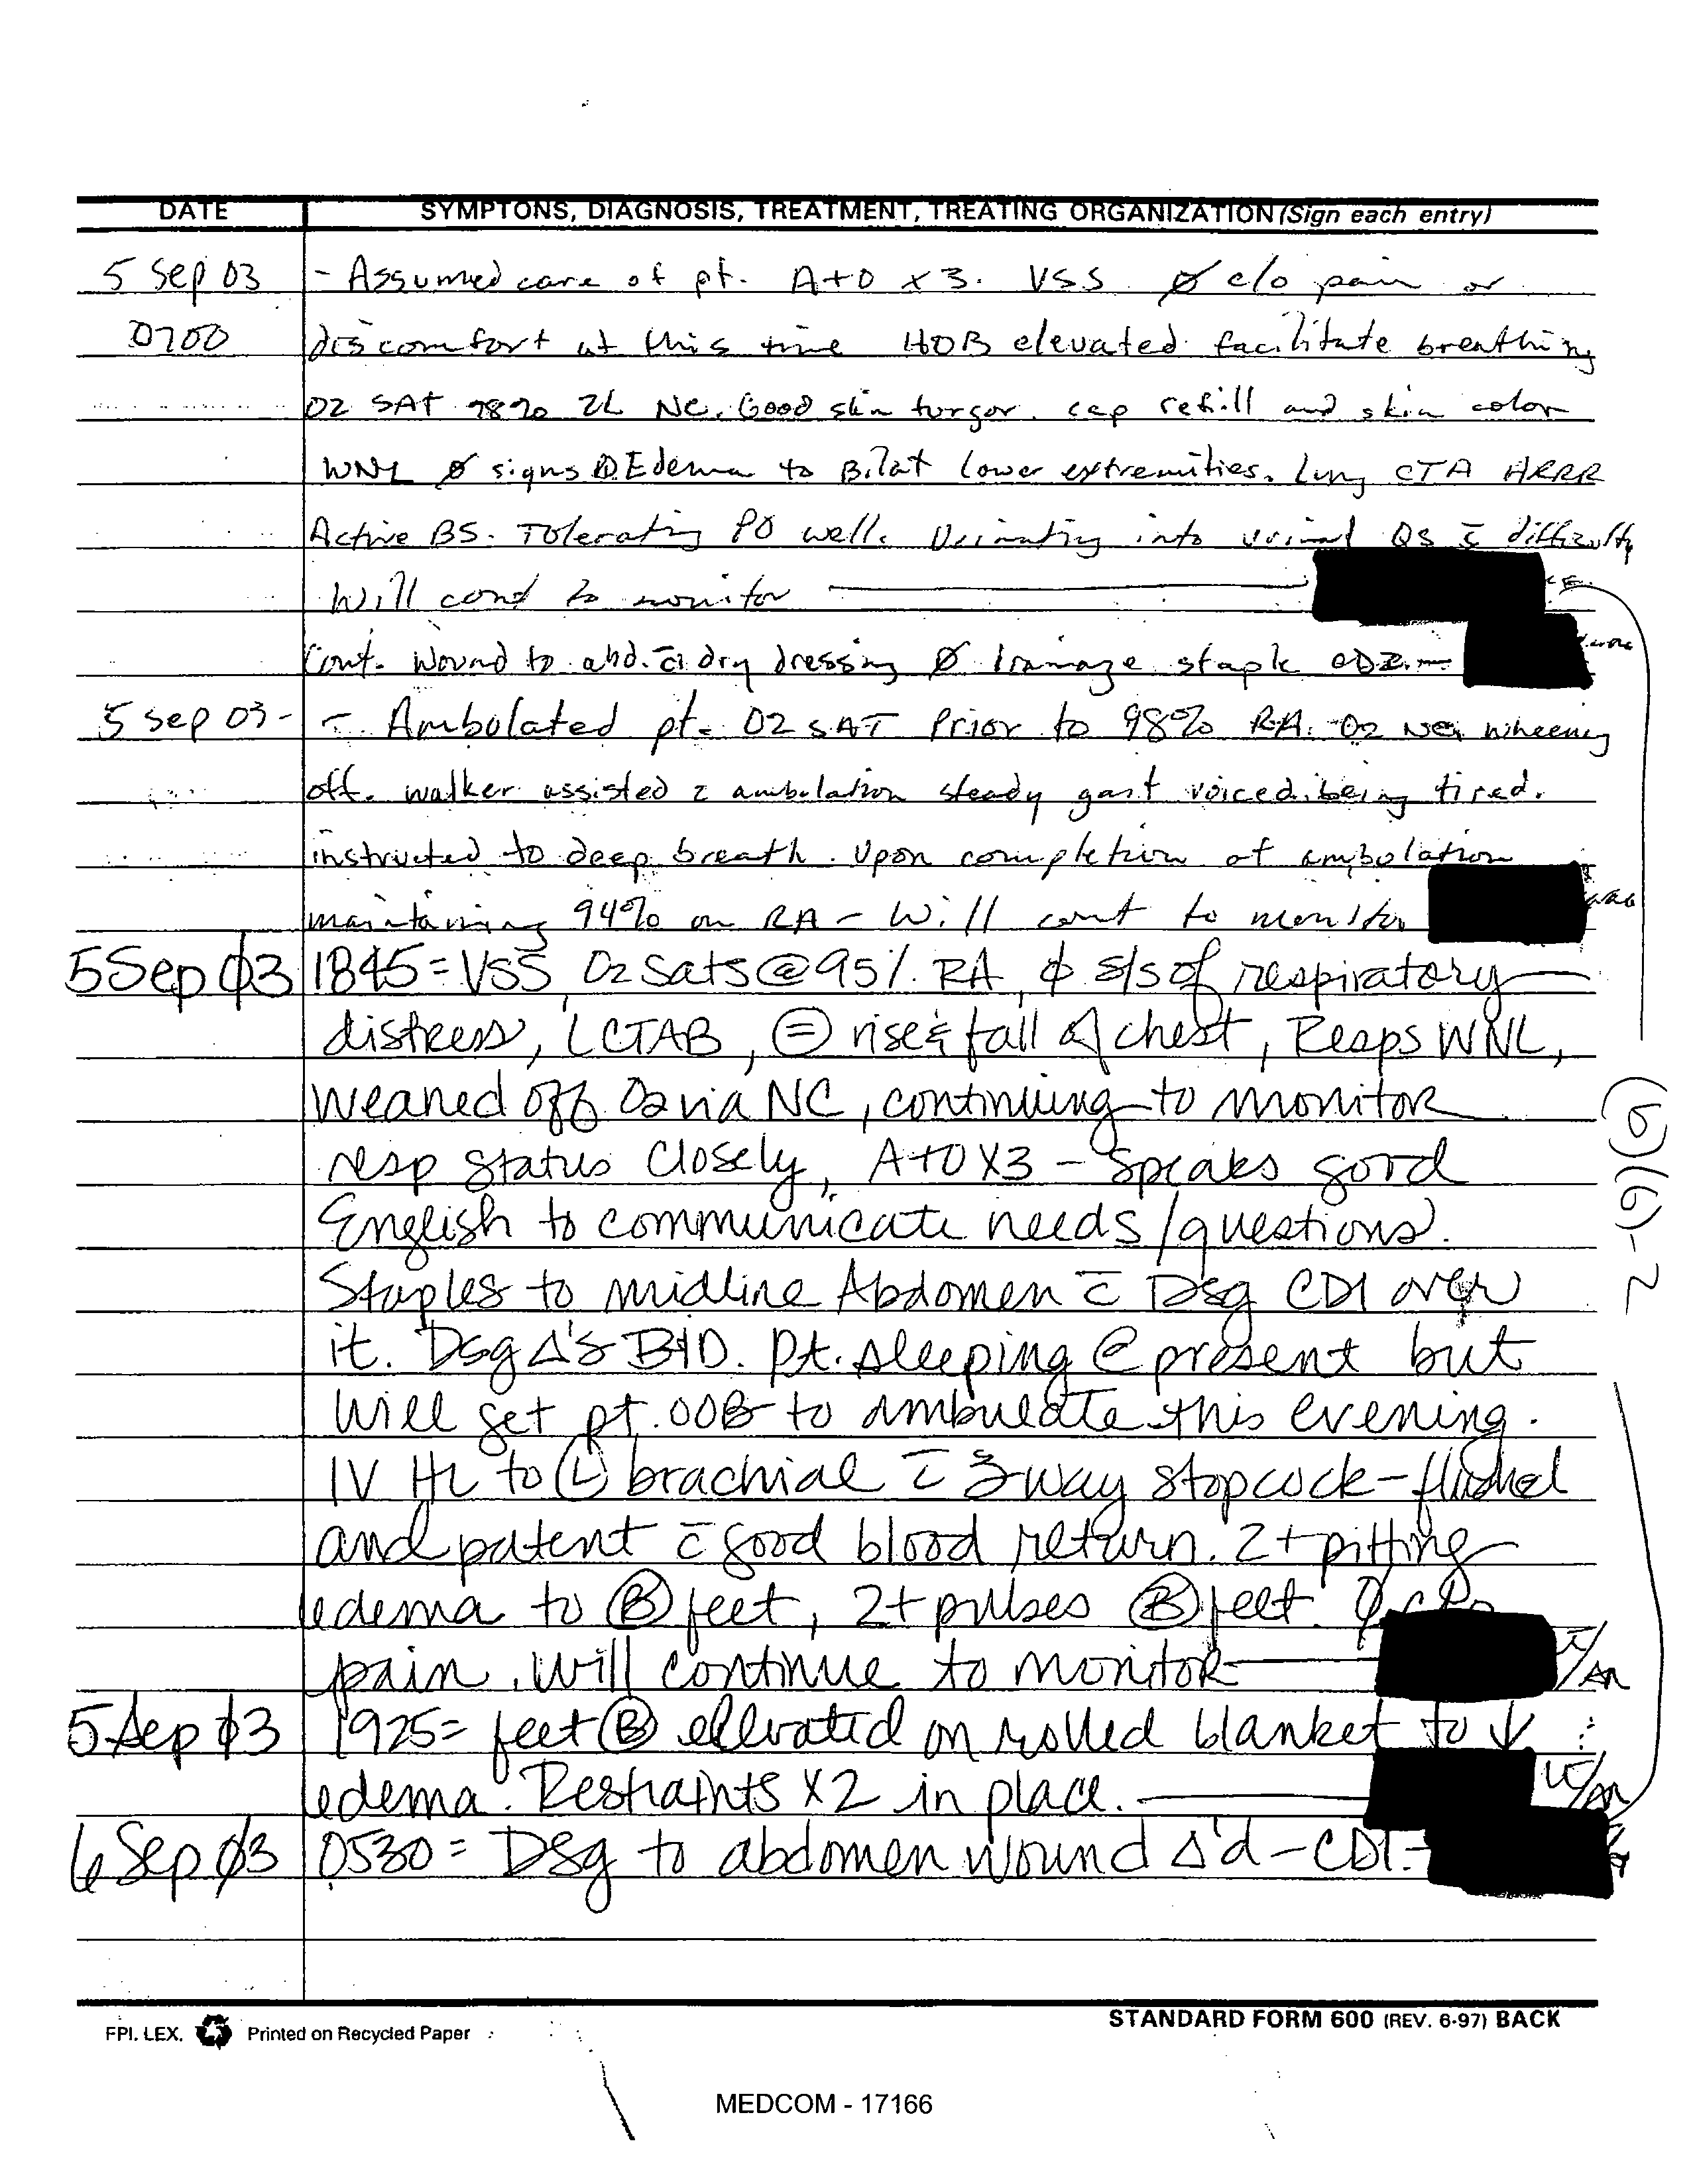 DATE SYMPTONS, DIAGNOSIS, TREATMENT, TREATING ORGANIZATION (Sign each entry)
5 Sep 03 - Assumed care of pt. A+O x 3. VSS Ø c/o pain or
0700 discomfort at this time HOB elevated facilitate breathing
O2 SAT 98% 2L NC. Good skin turgor. cap refill and skin color
WNL Ø signs Edema to Bilat lower extremities. Lung CTA HRRR
Active BS. Tolerating PO well. Urinating into urinal QS c̄ difficulty
Will cond to monitor
Cont. Wound to abd. c̄ dry dressing Ø drainaze staple
5 Sep 03 - - Ambolated pt. O2 SAT Prior to 98% RA. O2 wheening
off. walker assisted c̄ ambulation steady gait voiced being tired.
instructed to deep breath. Upon completion of ambolation
maintaining 94% on RA - Will cont to monitor
5 Sep 03 1845= VSS, O2 Sats @ 95% RA, Ø s/s of respiratory
distress, LCTAB, = rise & fall of chest, Resps WNL,
Weaned off O2 via NC, continuing to monitor
resp status closely, A+O X3 - Speaks good
English to communicate needs/questions.
Staples to midline Abdomen c̄ Dsg CDI over
it. Dsg Δ's BID. Pt. sleeping @ present but
will get pt. OOB to ambulate this evening.
IV HL to Ⓛ brachial c̄ 3 way stopcock - flushed
and patent c̄ good blood return. 2+ pitting
edema to Ⓑ feet, 2+ pulses Ⓑ feet. Ø c/o
pain. Will continue to monitor
5 Sep 03 1925= feet Ⓑ elevated on rolled blanket to ↓
edema. Restraints X2 in place.
6 Sep 03 0530= Dsg to abdomen wound Δ'd - CDI.
(b)(6)-2
FPI. LEX. Printed on Recycled Paper
STANDARD FORM 600 (REV. 6-97) BACK
MEDCOM - 17166